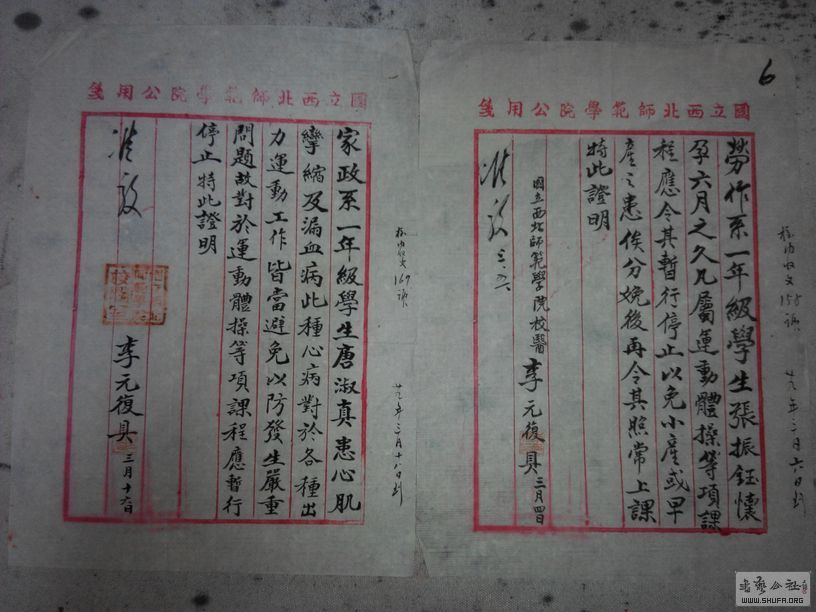 6
國立西北師範學院公用箋
勞作系一年級學生張振鈺懷
孕六月之久凡屬運動體操等項課
程應令其暫行停止以免小產或早
產之患俟分娩後再令其照常上課
特此證明
國立西北師範學院校醫 李元復具 三月四日
准 三、六
校內收文155號
廿九年三月六日到
國立西北師範學院公用箋
家政系一年級學生唐淑真患心肌
孿縮及漏血病此種心病對於各種出
力運動工作皆當避免以防發生嚴重
問題故對於運動體操等項課程應暫行
停止特此證明
李元復具 三月十六日
准
校內收文169號
廿九年三月十八日到
書藝公社
WWW.SHUFA.ORG